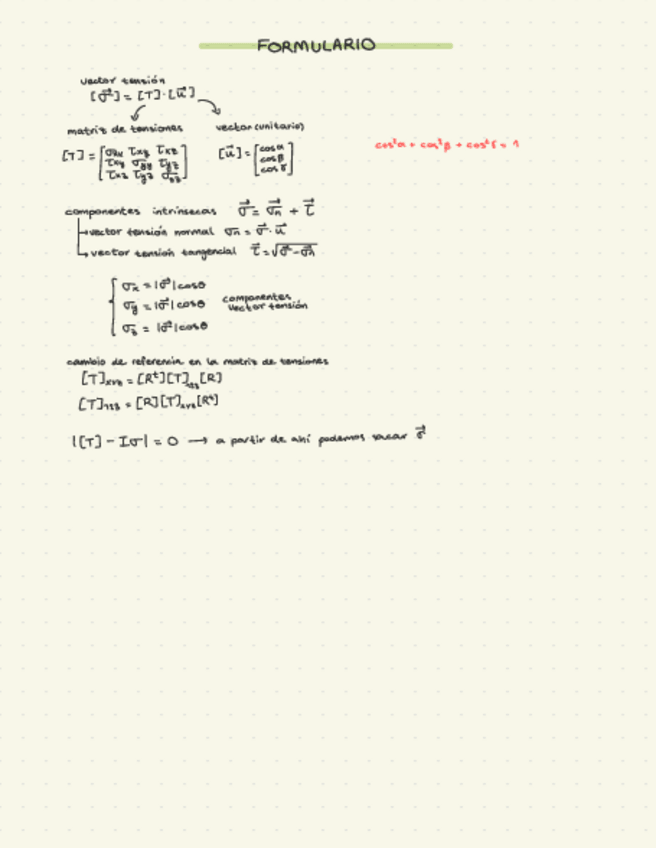 FORMULARIO
vector tensión
[σ⃗] = [T]·[u⃗]
matriz de tensiones vector (unitario)
[T] = [σxx τxy τxz
τxy σyy τyz
τxz τyz σzz]
[u⃗] = [cosα
cosβ
cosγ]
cos²α + cos²β + cos²γ = 1
componentes intrínsecas σ⃗ = σ⃗n + τ⃗
→ vector tensión normal σn = σ⃗·u⃗
→ vector tensión tangencial τ⃗ = √(σ⃗ - σ⃗n)
σx = |σ⃗| cosθ
σy = |σ⃗| cosθ
σz = |σ⃗| cosθ
componentes
vector tensión
cambio de referencia en la matriz de tensiones
[T]xyz = [Rᵗ][T]123[R]
[T]123 = [R][T]xyz[Rᵗ]
|[T] - Iσ| = 0 → a partir de ahí podemos sacar σ⃗